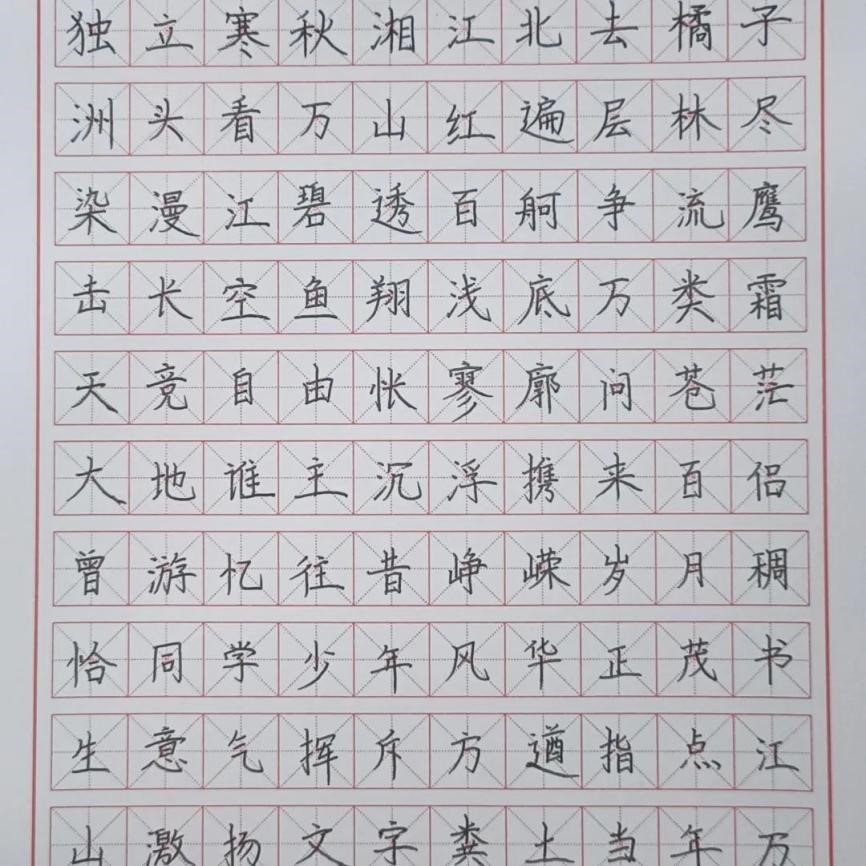 独立寒秋湘江北去橘子
洲头看万山红遍层林尽
染漫江碧透百舸争流鹰
击长空鱼翔浅底万类霜
天竞自由怅寥廓问苍茫
大地谁主沉浮携来百侣
曾游忆往昔峥嵘岁月稠
恰同学少年风华正茂书
生意气挥斥方遒指点江
山激扬文字粪土当年万